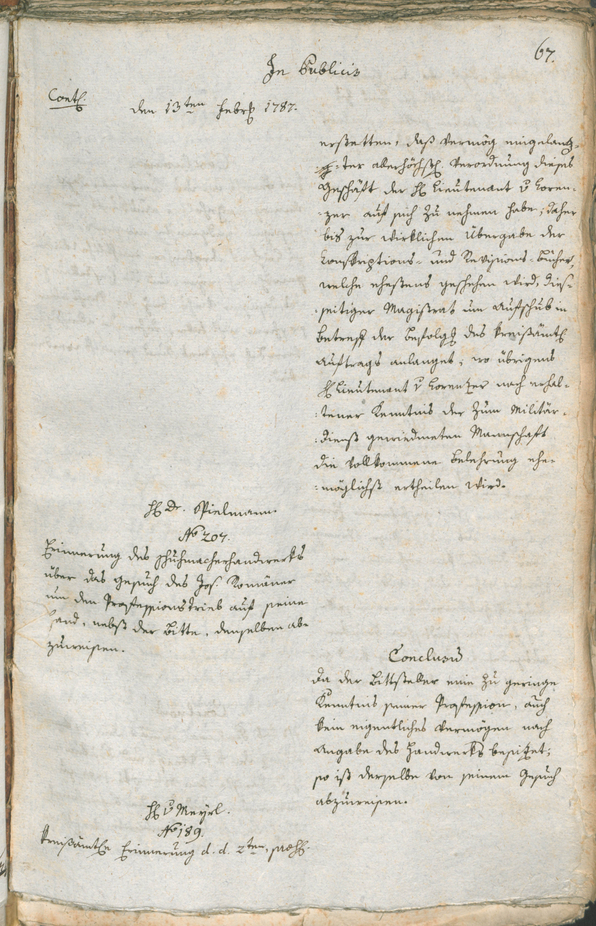 67.
In Publicis
Cont.
den 13ten Febr. 1787.
erstatten, daß vermög eingelang-
ter allerhöchst. Verordnung dieses
Geschäft der H. Lieutenant v Loren-
zer auf sich zu nehmen habe, daher
bis zur wirklichen Übergabe der
Konskriptions- und Revisions-Bücher,
welche ehestens geschehen wird, dies-
seitiger Magistrat um Aufschub in
Betreff der Befolg. des Kreisämtl.
Auftrags anlanget, wo übrigens
H. Lieutenant v Lorenzer nach erhal-
tener Kenntnis der zum Militär-
dienst gewiedmeten Mannschaft
die vollkommene Belehrung ehe-
möglichst ertheilen wird.
H. Dr. Spielmann.
No 207.
Erinnerung des Schuhmacherhandwerks
über das Gesuch des Jos. Komäner
um den Professionstrieb auf seine
Hand, nebst der Bitte, denselben ab-
zuweisen.
Conclusum
Da der Bittsteller eine zu geringe
Kenntnis seiner Profession, auch
kein eigentliches Vermögen nach
Angabe des Handwerks besitzet;
so ist derselbe von seinem Gesuch
abzuweisen.
H. v Meyrl.
No 189.
Kreisämtl. Erinnerung d. d. 2ten,